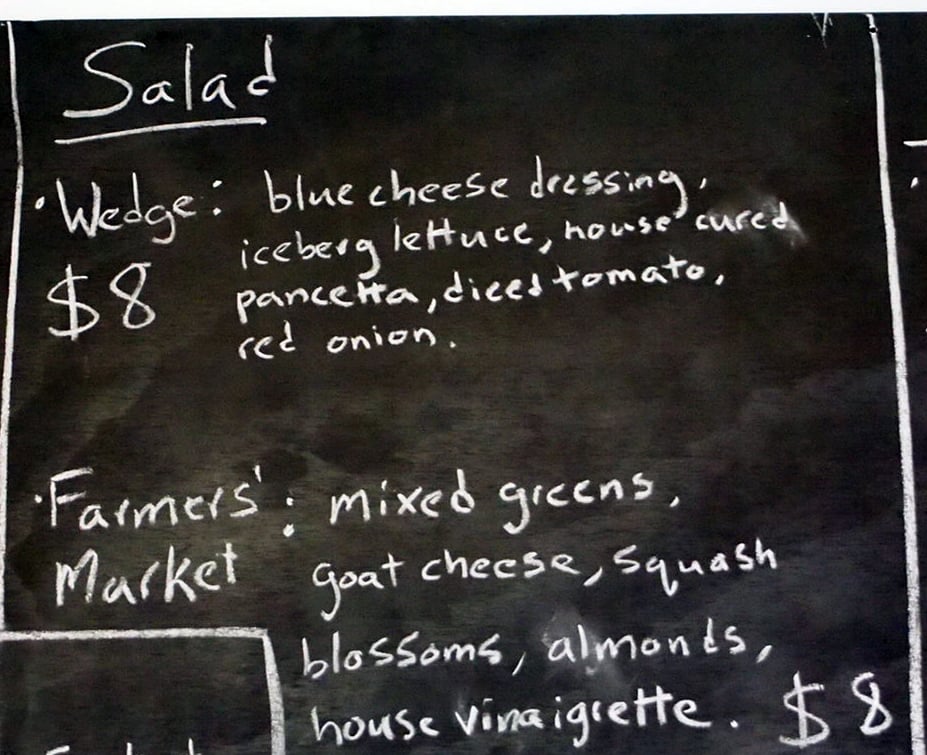 Salad
· Wedge: blue cheese dressing,
iceberg lettuce, house cured
$8 pancetta, diced tomato,
red onion.
· Farmers': mixed greens,
Market goat cheese, squash
blossoms, almonds,
house vinaigrette. $8